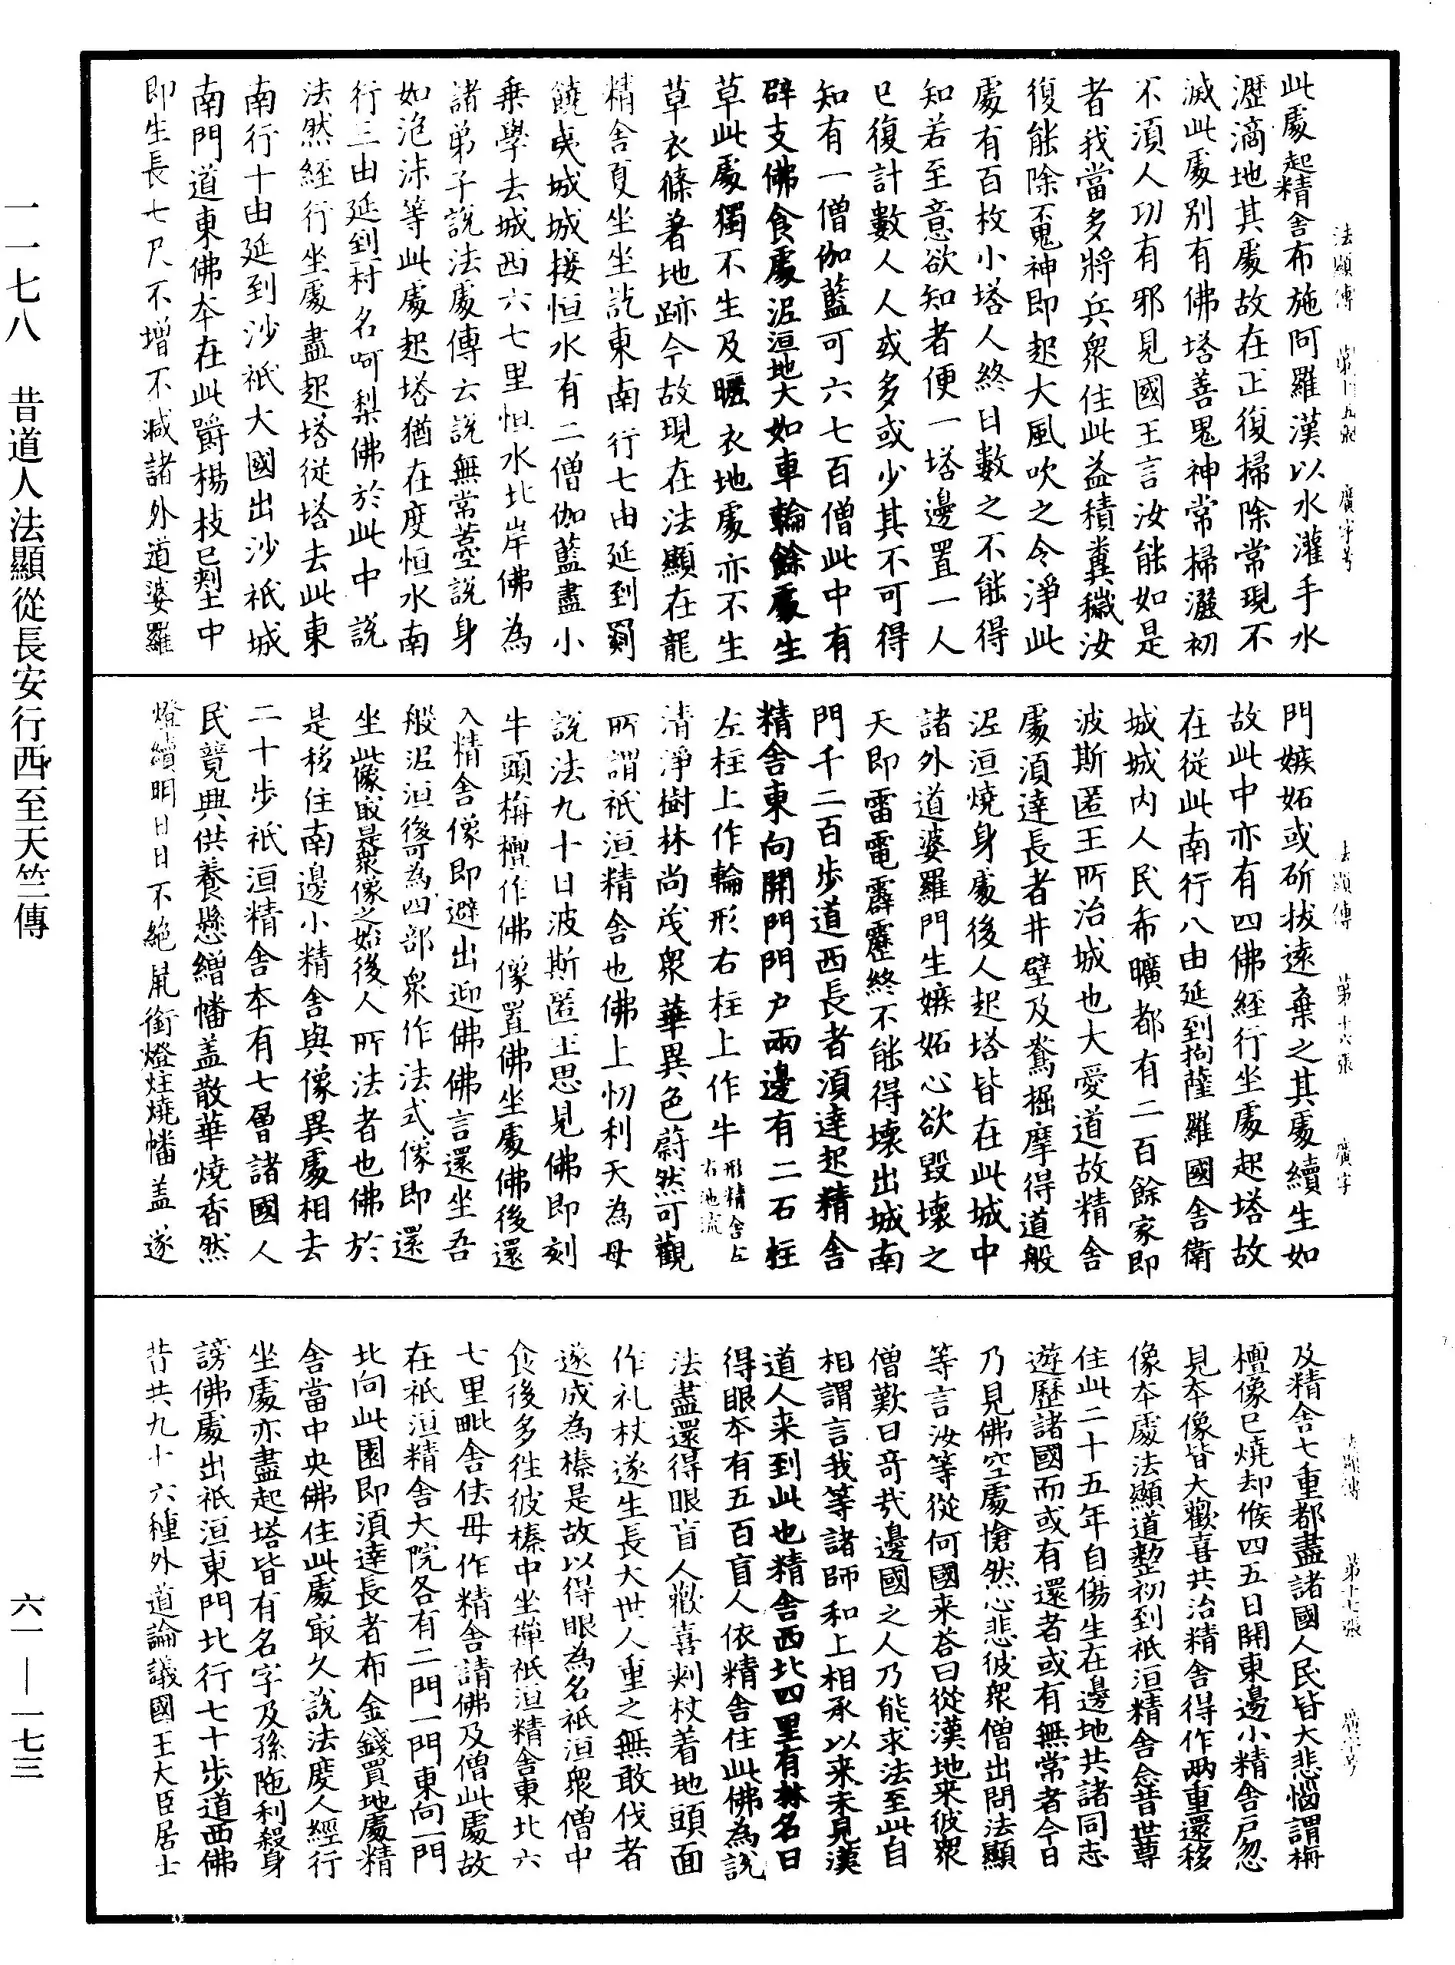 此處起精舍布施阿羅漢以水灌手水
瀝滴地其處故在正復掃除常現不
滅此處別有佛塔善鬼神常掃灑初
不湏人功有邪見國王言汝能如是
者我當多將兵衆住此益積糞穢汝
復能除不鬼神即起大風吹之令淨此
處有百枚小塔人終日數之不能得
知若至意欲知者便一塔邊置一人
已復計數人人或多或少其不可得
知有一僧伽藍可六七百僧此中有
辟支佛食處泥洹地大如車輪餘處生
草此處獨不生及曬衣地處亦不生
草衣絛著地跡今故現在法顯在龍
精舍夏坐坐訖東南行七由延到罽
饒夷城城接恒水有二僧伽藍盡小
乗學去城西六七里恒水北岸佛為
諸弟子說法處傳云說無常苦空說身
如泡沫等此處起塔猶在度恒水南
行三由延到村名呵梨佛於此中說
法然經行坐處盡起塔從塔去此東
南行十由延到沙祇大國出沙祇城
南門道東佛本在此嚼楊枝已刺土中
即生長七尺不增不減諸外道婆羅
法顯傳 第十五張 廣字号
門嫉妬或斫拔遠棄之其處續生如
故此中亦有四佛經行坐處起塔故
在從此南行八由延到拘薩羅國舍衛
城城內人民希曠都有二百餘家即
波斯匿王所治城也大愛道故精舍
處湏達長者井壁及鴦掘摩得道般
泥洹燒身處後人起塔皆在此城中
諸外道婆羅門生嫉妬心欲毀壞之
天即雷電霹靂終不能得壞出城南
門千二百步道西長者湏達起精舍
精舍東向開門門户兩邊有二石柱
左柱上作輪形右柱上作牛形精舍左右池流
清淨樹林尚茂衆華異色蔚然可觀
所謂祇洹精舍也佛上忉利天為母
說法九十日波斯匿王思見佛即刻
牛頭栴檀作佛像置佛坐處佛後還
入精舍像即避出迎佛佛言還坐吾
般泥洹後可為四部衆作法式像即還
坐此像㝡是衆像之始後人所法者也佛於
是移住南邊小精舍與像異處相去
二十步祇洹精舍本有七層諸國人
民競興供養懸繒幡盖散華燒香然
燈續明日日不絕鼠銜燈炷燒幡盖遂
法顯傳 第十六張 廣字
及精舍七重都盡諸國人民皆大悲惱謂栴
檀像已燒却後四五日開東邊小精舍户忽
見本像皆大歡喜共治精舍得作兩重還移
像本處法顯道整初到祇洹精舍念昔世尊
住此二十五年自傷生在邊地共諸同志
遊歷諸國而或有還者或有無常者今日
乃見佛空處愴然心悲彼衆僧出問法顯
等言汝等從何國来荅曰從漢地来彼衆
僧歎曰奇㦲邊國之人乃能求法至此自
相謂言我等諸師和上相承以来未見漢
道人来到此也精舍西北四里有林名曰
得眼本有五百盲人依精舍住此佛為說
法盡還得眼盲人歡喜刺杖着地頭面
作礼杖遂生長大世人重之無敢伐者
遂成為榛是故以得眼為名祇洹衆僧中
食後多往彼榛中坐禪祇洹精舍東北六
七里毗舍佉母作精舍請佛及僧此處故
在祇洹精舍大院各有二門一門東向一門
北向此園即湏達長者布金錢買地處精
舍當中央佛住此處㝡久說法度人經行
坐處亦盡起塔皆有名字及孫陁利殺身
謗佛處出祇洹東門北行七十步道西佛
昔共九十六種外道論議國王大臣居士
法顯傳 第十七張 廣字号
一一七八 昔道人法顯從長安行西至天竺傳
六一—一七三